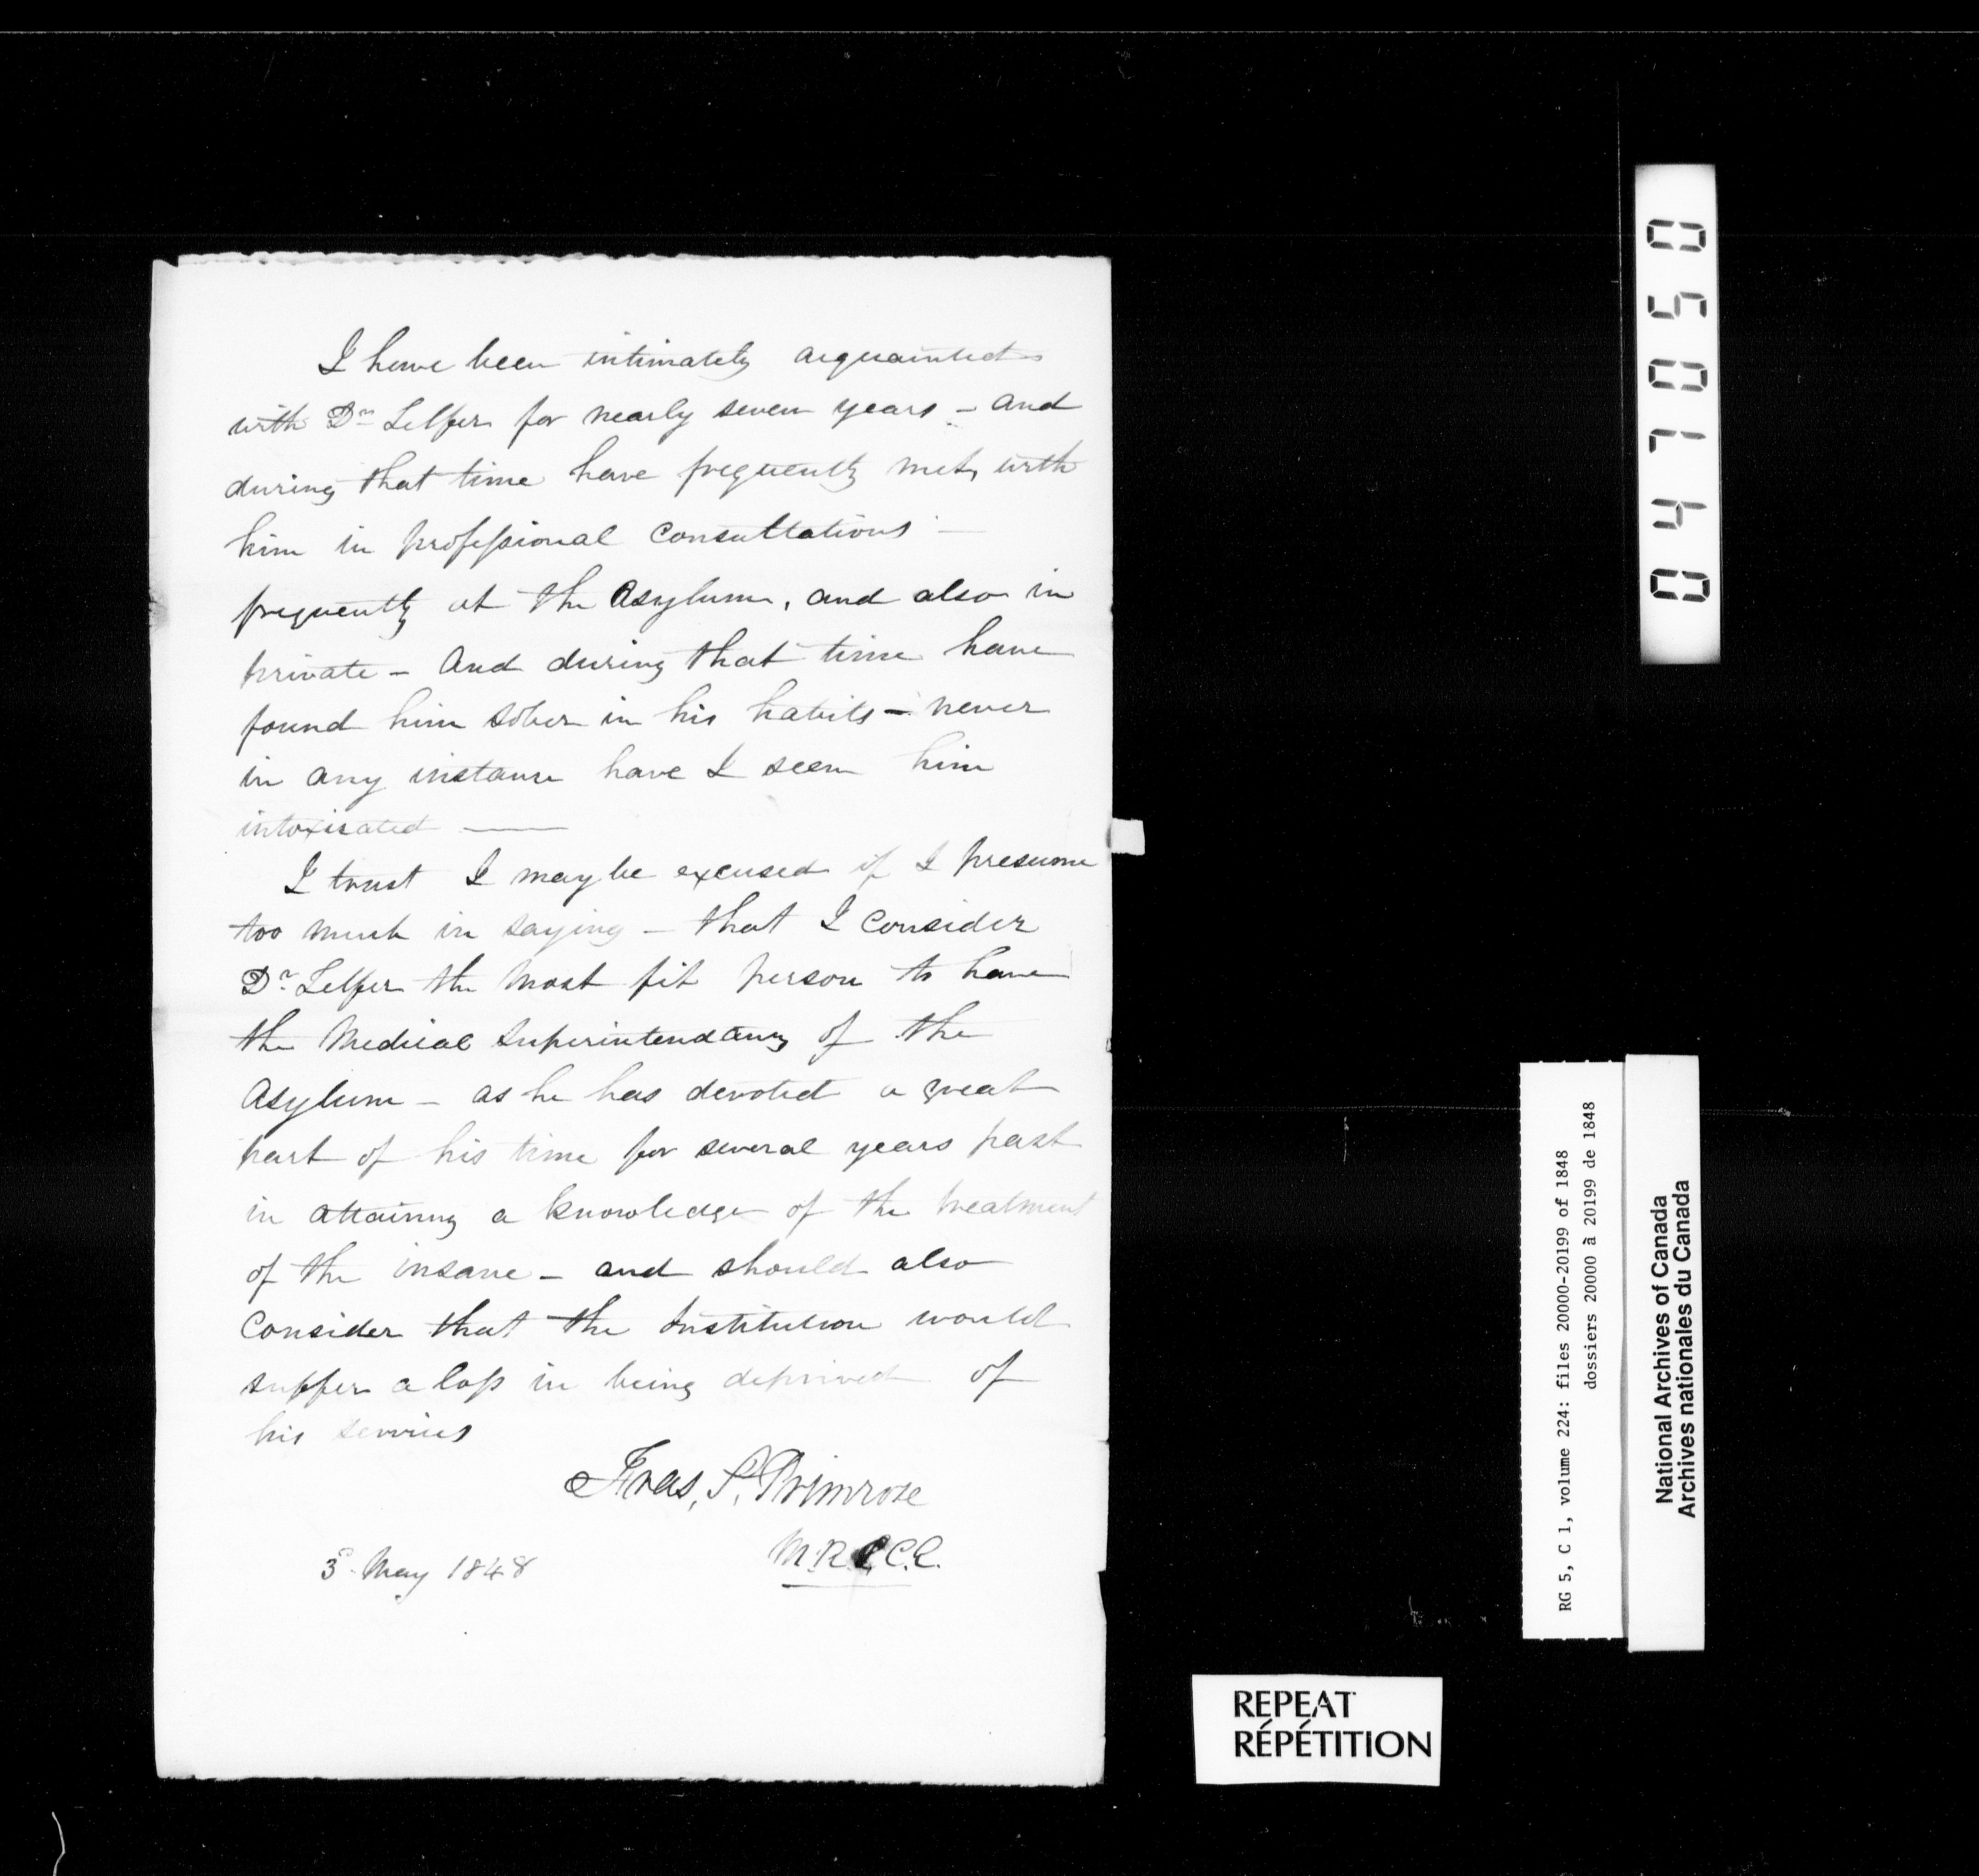 I have been intimately acquainted
with Dr Telfer for nearly seven years - and
during that time have frequently met with
him in professional Consultations -
frequently at the Asylum, and also in
private - And during that time have
found him sober in his habits - never
in any instance have I seen him
intoxicated —
I trust I may be excused if I presume
too much in saying - that I Consider
Dr Telfer the most fit person to have
the Medical Superintendancy of the
Asylum - as he has devoted a great
part of his time for several years past
in attaining a knowledge of the treatment
of the insane - and should also
Consider that the Institution would
suffer a loss in being deprived of
his services
Fras, S. Primrose
M.R.C.C.
3d May 1848
047050
RG 5, C 1, volume 224: files 20000-20199 of 1848
dossiers 20000 à 20199 de 1848
National Archives of Canada
Archives nationales du Canada
REPEAT
RÉPÉTITION